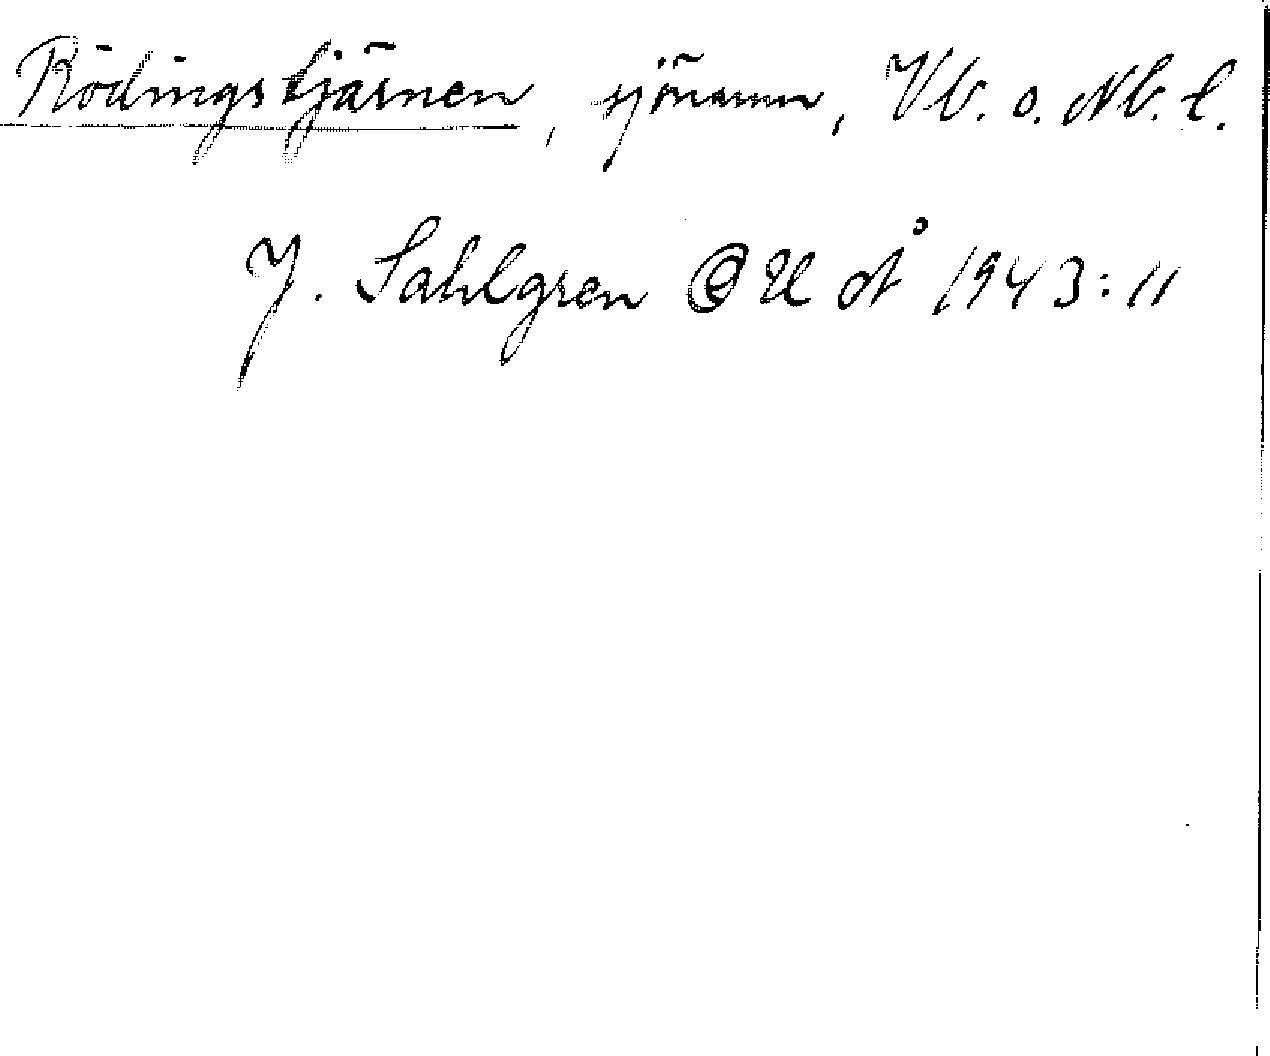 Rödingstjärnen, sjönamn, Vb. o. Nb. l.
J. Sahlgren OUÅ 1943:11